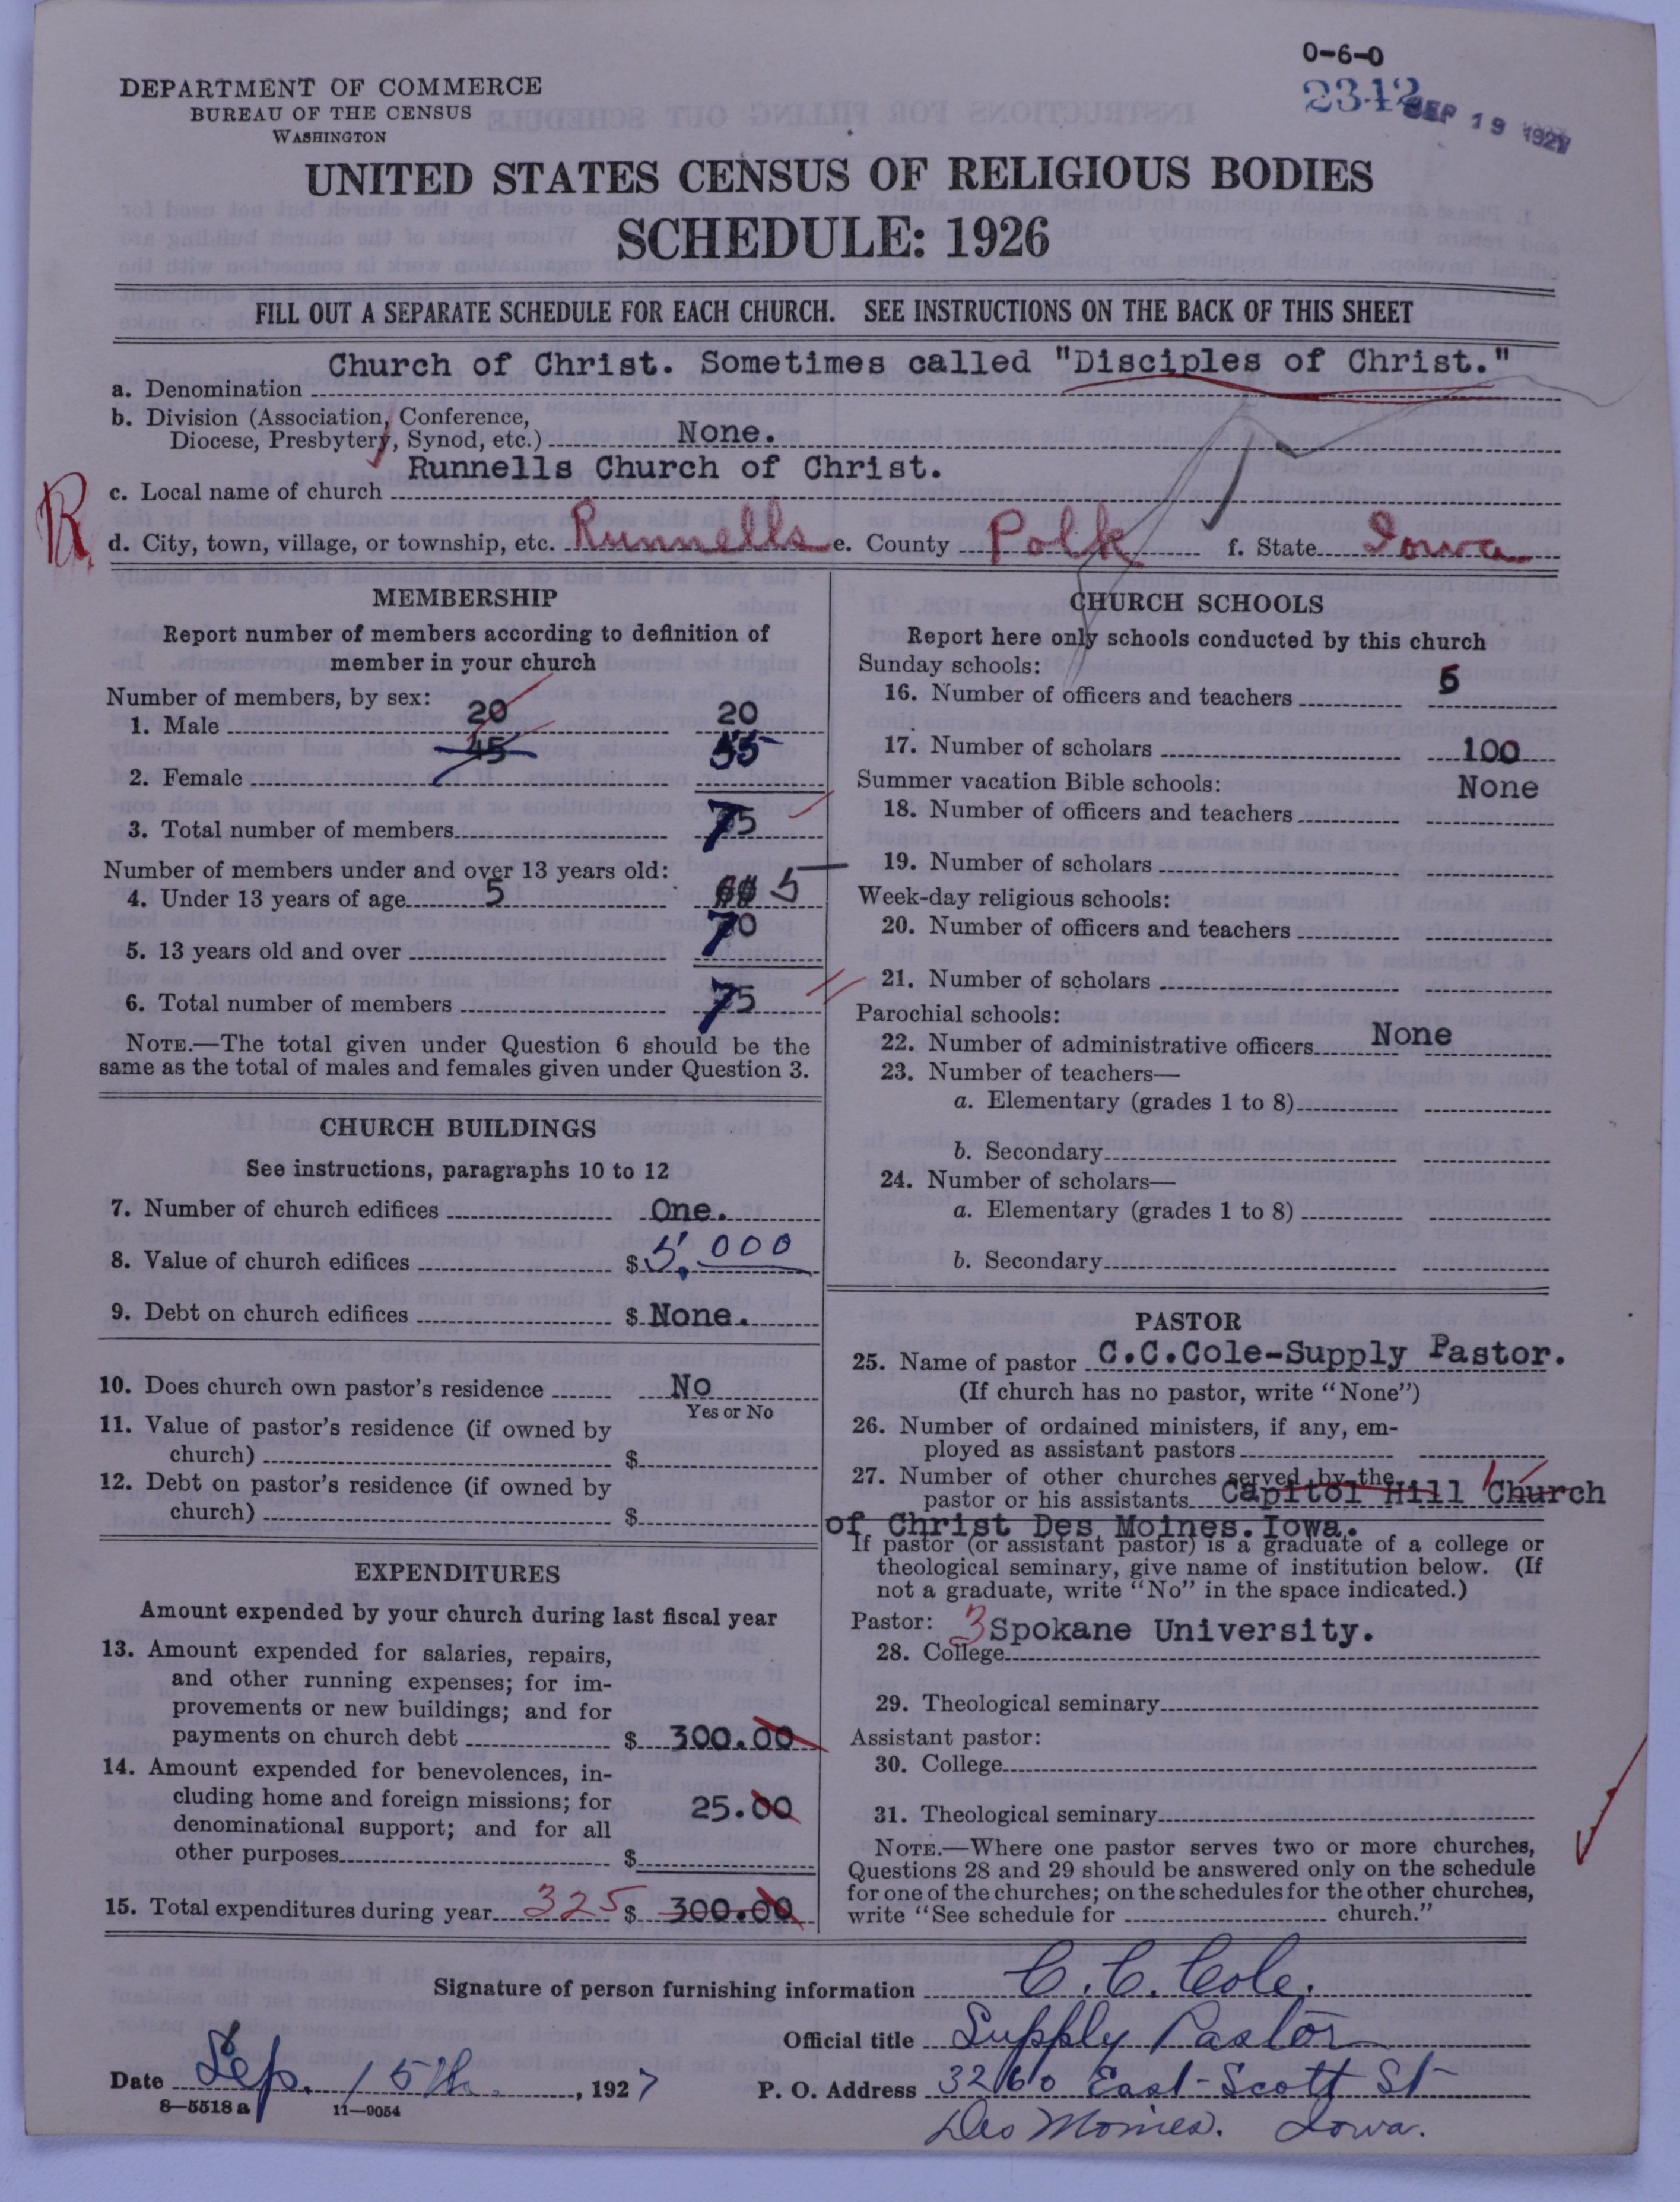 0-6-0
2342 SEP 19 1927
DEPARTMENT OF COMMERCE
BUREAU OF THE CENSUS
WASHINGTON
UNITED STATES CENSUS OF RELIGIOUS BODIES
SCHEDULE: 1926
FILL OUT A SEPARATE SCHEDULE FOR EACH CHURCH. SEE INSTRUCTIONS ON THE BACK OF THIS SHEET
a. Denomination Church of Christ. Sometimes called "Disciples of Christ."
b. Division (Association, Conference,
Diocese, Presbytery, Synod, etc.) None.
c. Local name of church Runnells Church of Christ.
R
d. City, town, village, or township, etc. Runnells e. County Polk f. State Iowa
MEMBERSHIP
Report number of members according to definition of
member in your church
Number of members, by sex:
1. Male 20 20
2. Female 45 55
3. Total number of members 75
Number of members under and over 13 years old:
4. Under 13 years of age 5 5
5. 13 years old and over 70
6. Total number of members 75
NOTE.—The total given under Question 6 should be the
same as the total of males and females given under Question 3.
CHURCH BUILDINGS
See instructions, paragraphs 10 to 12
7. Number of church edifices One.
8. Value of church edifices $ 5,000
9. Debt on church edifices $ None.
10. Does church own pastor's residence No
Yes or No
11. Value of pastor's residence (if owned by
church) $
12. Debt on pastor's residence (if owned by
church) $
EXPENDITURES
Amount expended by your church during last fiscal year
13. Amount expended for salaries, repairs,
and other running expenses; for im-
provements or new buildings; and for
payments on church debt $ 300.00
14. Amount expended for benevolences, in-
cluding home and foreign missions; for
denominational support; and for all
other purposes $ 25.00
15. Total expenditures during year 325 $ 300.00
CHURCH SCHOOLS
Report here only schools conducted by this church
Sunday schools:
16. Number of officers and teachers 5
17. Number of scholars 100
Summer vacation Bible schools:
18. Number of officers and teachers None
19. Number of scholars
Week-day religious schools:
20. Number of officers and teachers
21. Number of scholars
Parochial schools:
22. Number of administrative officers None
23. Number of teachers—
a. Elementary (grades 1 to 8)
b. Secondary
24. Number of scholars—
a. Elementary (grades 1 to 8)
b. Secondary
PASTOR
25. Name of pastor C.C.Cole-Supply Pastor.
(If church has no pastor, write "None")
26. Number of ordained ministers, if any, em-
ployed as assistant pastors
27. Number of other churches served by the 1
pastor or his assistants Capitol Hill Church
of Christ Des Moines. Iowa.
If pastor (or assistant pastor) is a graduate of a college or
theological seminary, give name of institution below. (If
not a graduate, write "No" in the space indicated.)
Pastor: 3 Spokane University.
28. College
29. Theological seminary
Assistant pastor:
30. College
31. Theological seminary
NOTE.—Where one pastor serves two or more churches,
Questions 28 and 29 should be answered only on the schedule
for one of the churches; on the schedules for the other churches,
write "See schedule for church."
Signature of person furnishing information C. C. Cole.
Official title Supply Pastor
Date Sep. 15th, 1927 P. O. Address 3260 East-Scott St
8—5518 a 11—9054
Des Moines. Iowa.